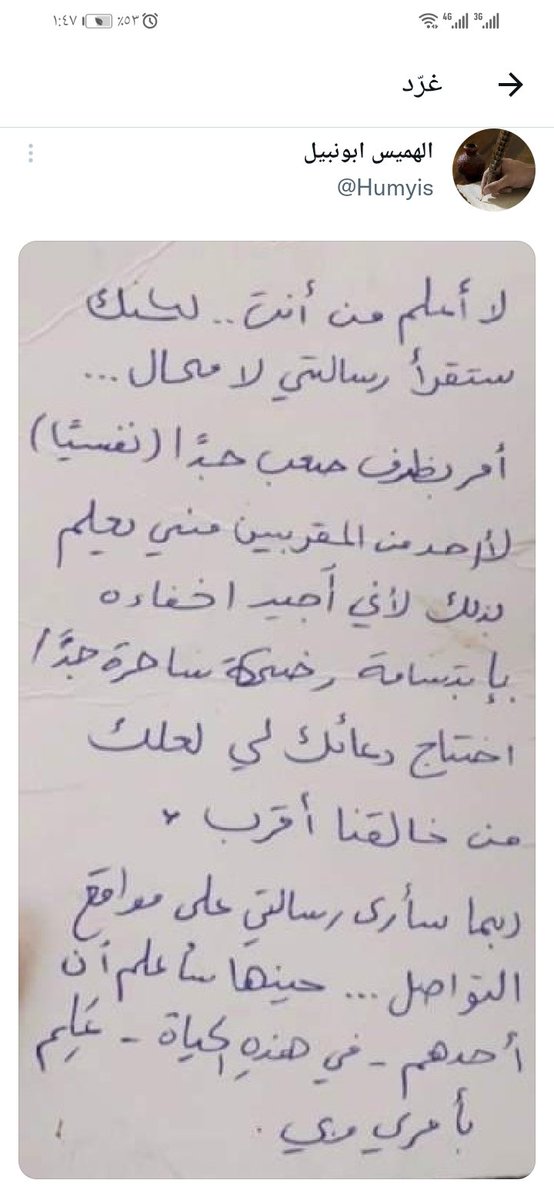 ١:٤٧
٪٥٣
4G
3G
غرّد
الهميس ابونبيل
@Humyis
لا أعلم من أنت .. لكنك
ستقرأ رسالتي لا محال ...
أمر بظرف صعب جدًا (نفسيًا)
لا أحد من المقربين مني يعلم
بذلك لأني أجيد اخفاءه
بإبتسامة وضحكة ساحرة جدًا
احتاج دعائك لي لعلك
من خالقنا أقرب
ربما سأرى رسالتي على مواقع
التواصل ... حينها سأعلم أن
أحدهم - في هذهِ الحياة - عَلِم
بأمري وبي .